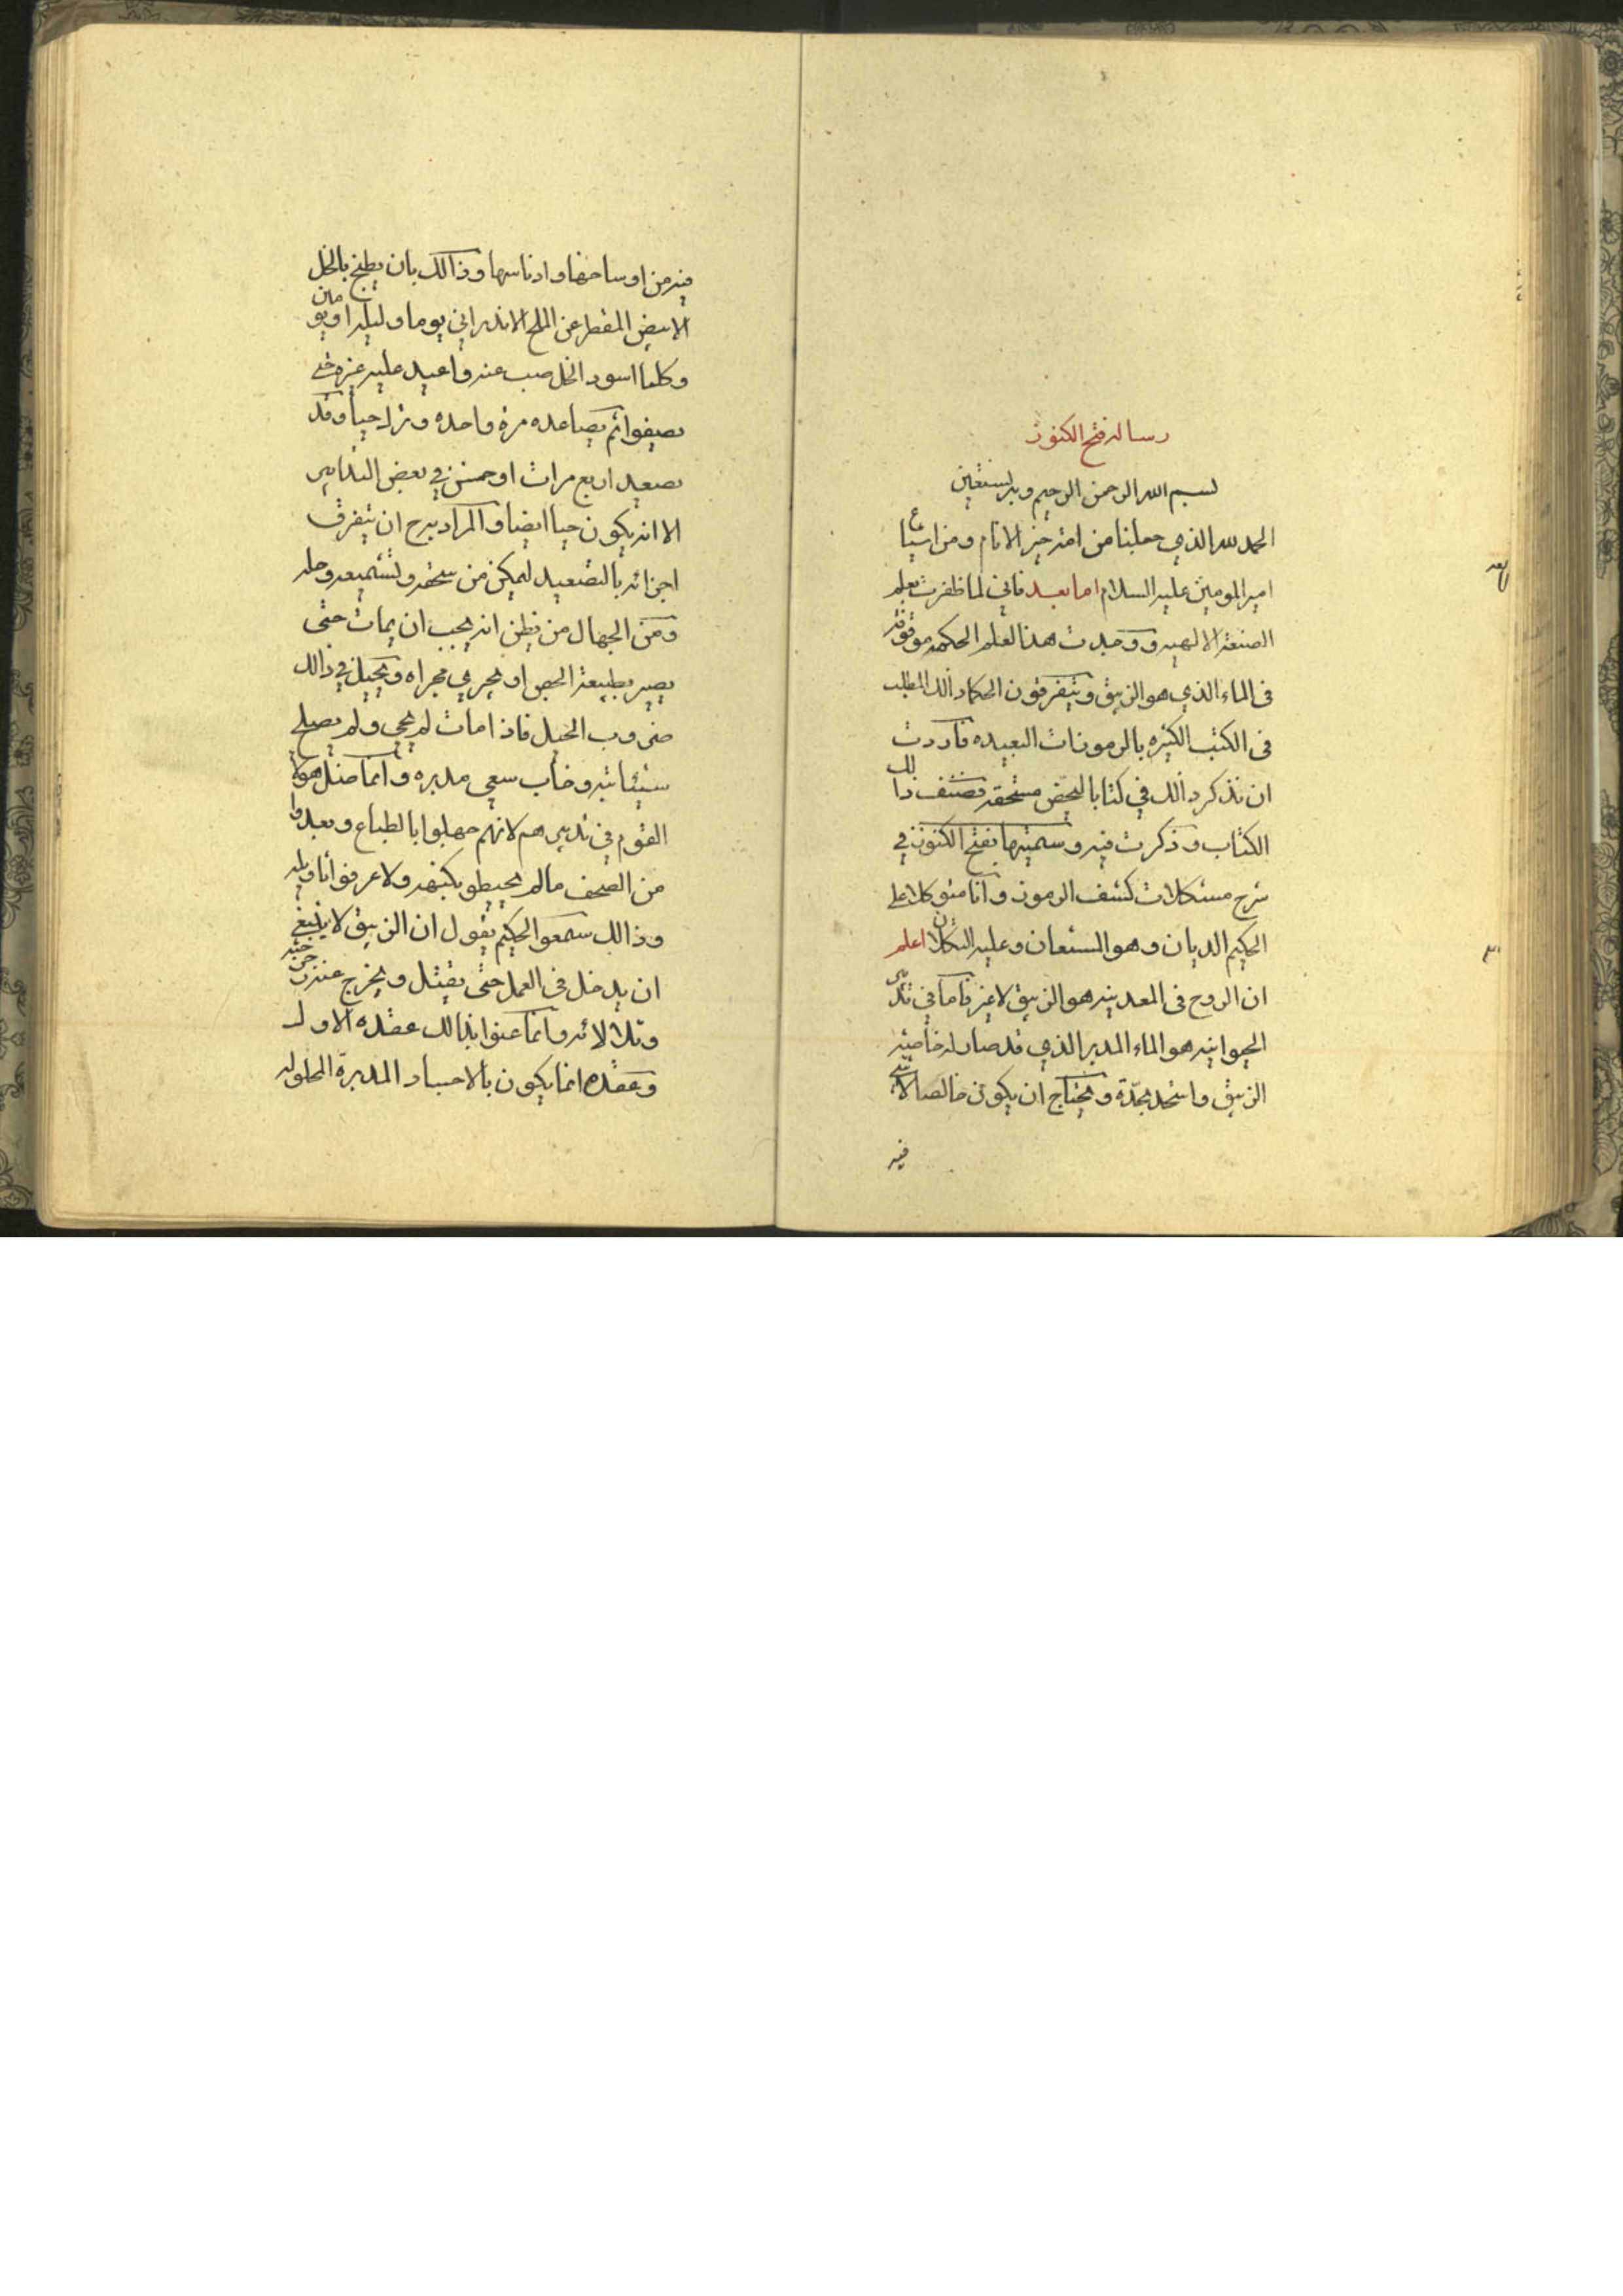 رساله فتح الكنوز
بسم الله الرحمن الرحيم وبه نستعين
الحمد لله الذي جعلنا من امة خير الانام ومن اشياع
امير المومنين عليه السلام اما بعد فاني لما ظفرت بعلم
الصنعة الالهيه ووجدت هذا لعلم الحكمه موقوفة
فى الماء الذي هو الزيبق ويتفرقون الحكما ذالك المطلب
فى الكتب الكثيره بالرموزات البعيده فاردت
ان نذكر ذالك في كتابا لبعض مستحقه فصنف ذالك
الكتاب وذكرت فيه وسميتها بفتح الكنوز في
شرح مشكلات كشف الرموز وانا متوكلا على
الحكيم الديان وهو المستعان وعليه التكلان اعلم
ان الروح فى المعدنيه هو الزيبق لا غير فاما في تدبير
الحيوانيه هو الماء المدبر الذي قد صار له خاصية
الزيبق واتحد بجدة ويحتاج ان يكون خالصا لا شئ
فيه
فيه من اوساخها وادناسها وذالك بان يطبخ بالخل
الابيض المقطر عن الملح الاندراني يوما وليله او يومين
وكلما اسود الخل صب عنه واعيد عليه غيره حتى
يصفوا ثم يصاعده مرة واحده ونزل حيا وقد
يصعد اربع مرات او خمس في بعض التدابير
الا انه يكون حيا ايضا والمراد به ان يتفرق
اجزائه بالتصعيد ليمكن من سحقه وتشميعه وحله
ومن الجهال من يظن انه يجب ان يمات حتى
يصير بطبيعة الجص او يجري مجراه ويحيل في ذالك
ضروب الحيل فاذا مات لم يحي ولم يصلح
شيئا بته وخاب سعي مدبره وانما ضل هولاء
القوم في تدبيرهم لانهم جهلوا بالطباع وبعدوا
من الصحف مالم يحيطو بكنهه ولا عرفوا تاويله
وذالك سمعو الحكيم يقول ان الزيبق لا ينبغي
ان يدخل فى العمل حتى يقتل ويخرج عنه رجرجته
وتلالائه وانما عنوا بذالك عقده الاول
وعقده انما يكون بالاجساد المدبرة المحلوله